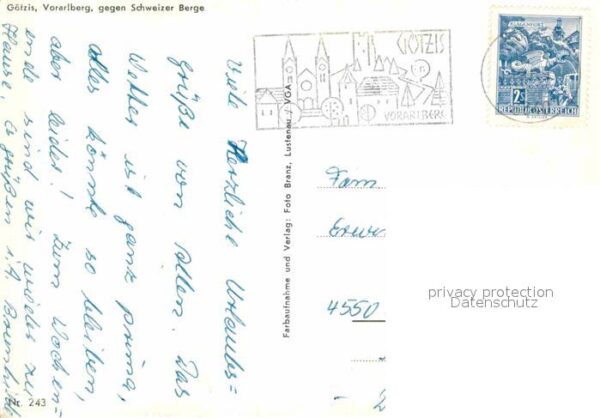 Götzis, Vorarlberg, gegen Schweizer Berge
Viele Herzliche Urlaubs=
grüße von Allen. Das
Wetter ist ganz prima,
alles könnte so bleiben,
aber leider! Zum Wochen-
ende sind wir wieder zu
Hause. Es grüßen
Nr. 243
Farbaufnahme und Verlag: Foto Branz, Lustenau / VGA
GÖTZIS
VORARLBERG
2 S
REPUBLIK ÖSTERREICH
Fam
4550
privacy protection
Datenschutz